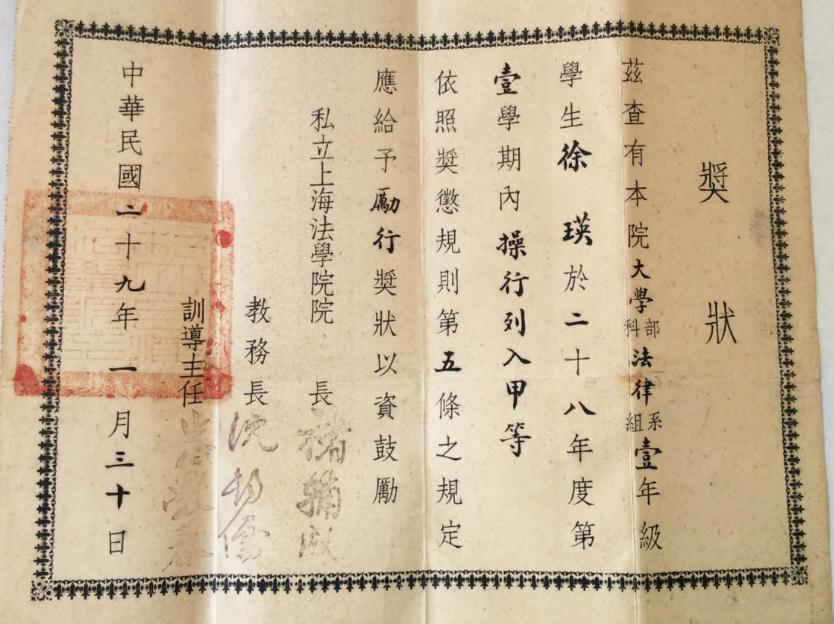 獎狀
茲查有本院大學部科法律系組壹年級
學生徐瑛於二十八年度第
壹學期內操行列入甲等
依照獎懲規則第五條之規定
應給予勵行獎狀以資鼓勵
私立上海法學院院長褚輔成
教務長沈
訓導主任
中華民國二十九年一月三十日